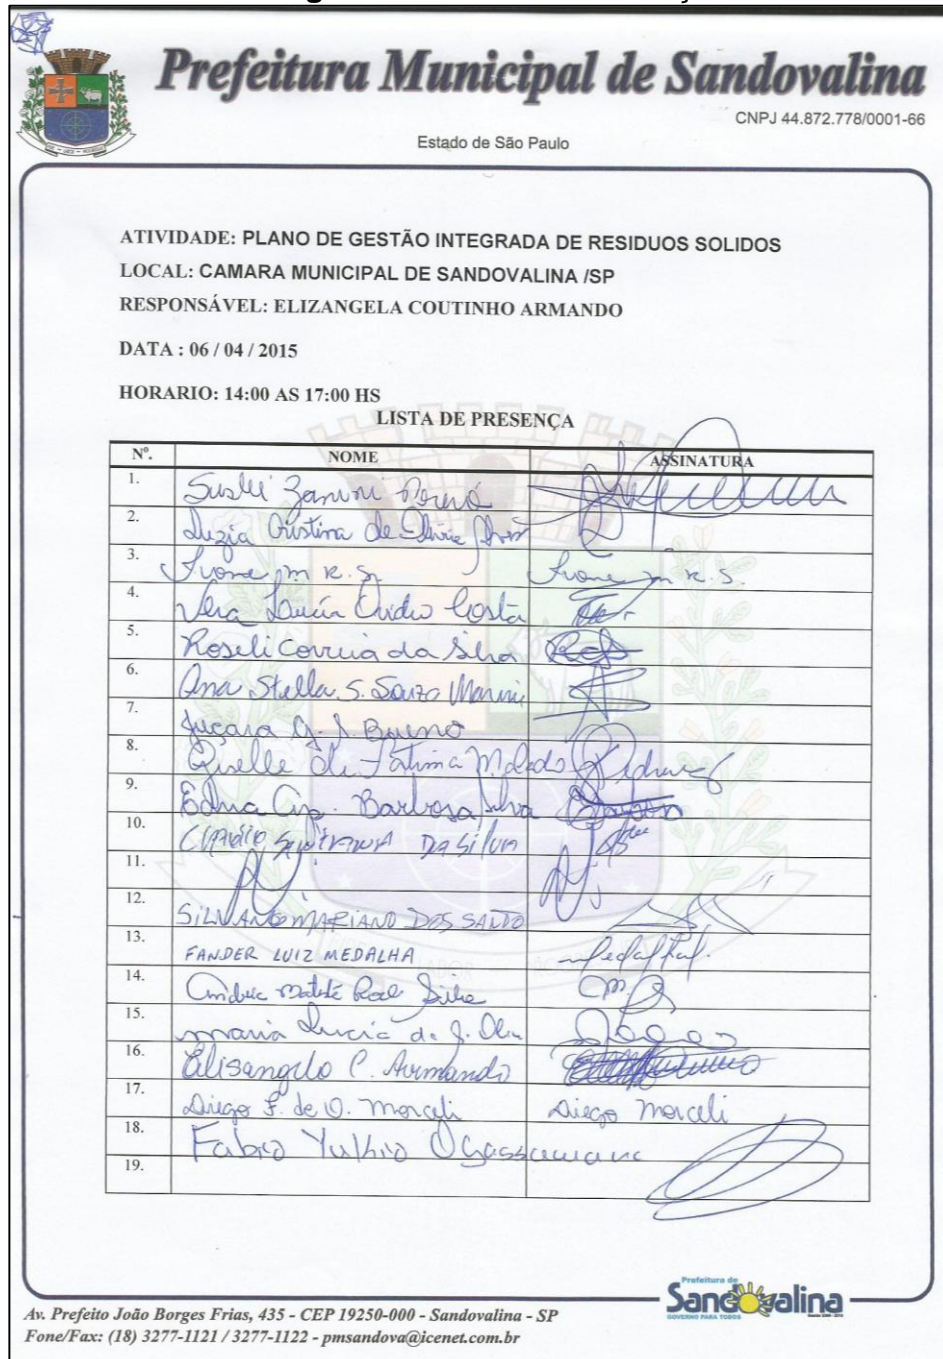 Prefeitura Municipal de Sandovalina
CNPJ 44.872.778/0001-66
Estado de São Paulo
ATIVIDADE: PLANO DE GESTÃO INTEGRADA DE RESIDUOS SOLIDOS
LOCAL: CAMARA MUNICIPAL DE SANDOVALINA /SP
RESPONSÁVEL: ELIZANGELA COUTINHO ARMANDO
DATA : 06 / 04 / 2015
HORARIO: 14:00 AS 17:00 HS
LISTA DE PRESENÇA
Nº. NOME ASSINATURA
1. Zanini
2. Luzia Cristina de
3. Ivone m R. S. Ivone m R. S.
4. Vera Lucia Costa
5. Roseli Correia da Silva
6. Ana Stella S. Souza Marini
7. Juçara G. S. Bueno
8. Giselle de Fatima
9. Edna Ap. Barbosa Silva
10. DA SiLVA
11.
12. SiLVANO MARIANO DOS SANTO
13. FANDER LUIZ MEDALHA
14. Silva
15. maria Lucia de
16. Elisangela C. Armando
17. Diego F. de O. Morceli Diego Morceli
18. Fabio Yukio Ogassawara
19.
Prefeitura de
Sandovalina
GOVERNO PARA TODOS
Av. Prefeito João Borges Frias, 435 - CEP 19250-000 - Sandovalina - SP
Fone/Fax: (18) 3277-1121 / 3277-1122 - pmsandova@icenet.com.br